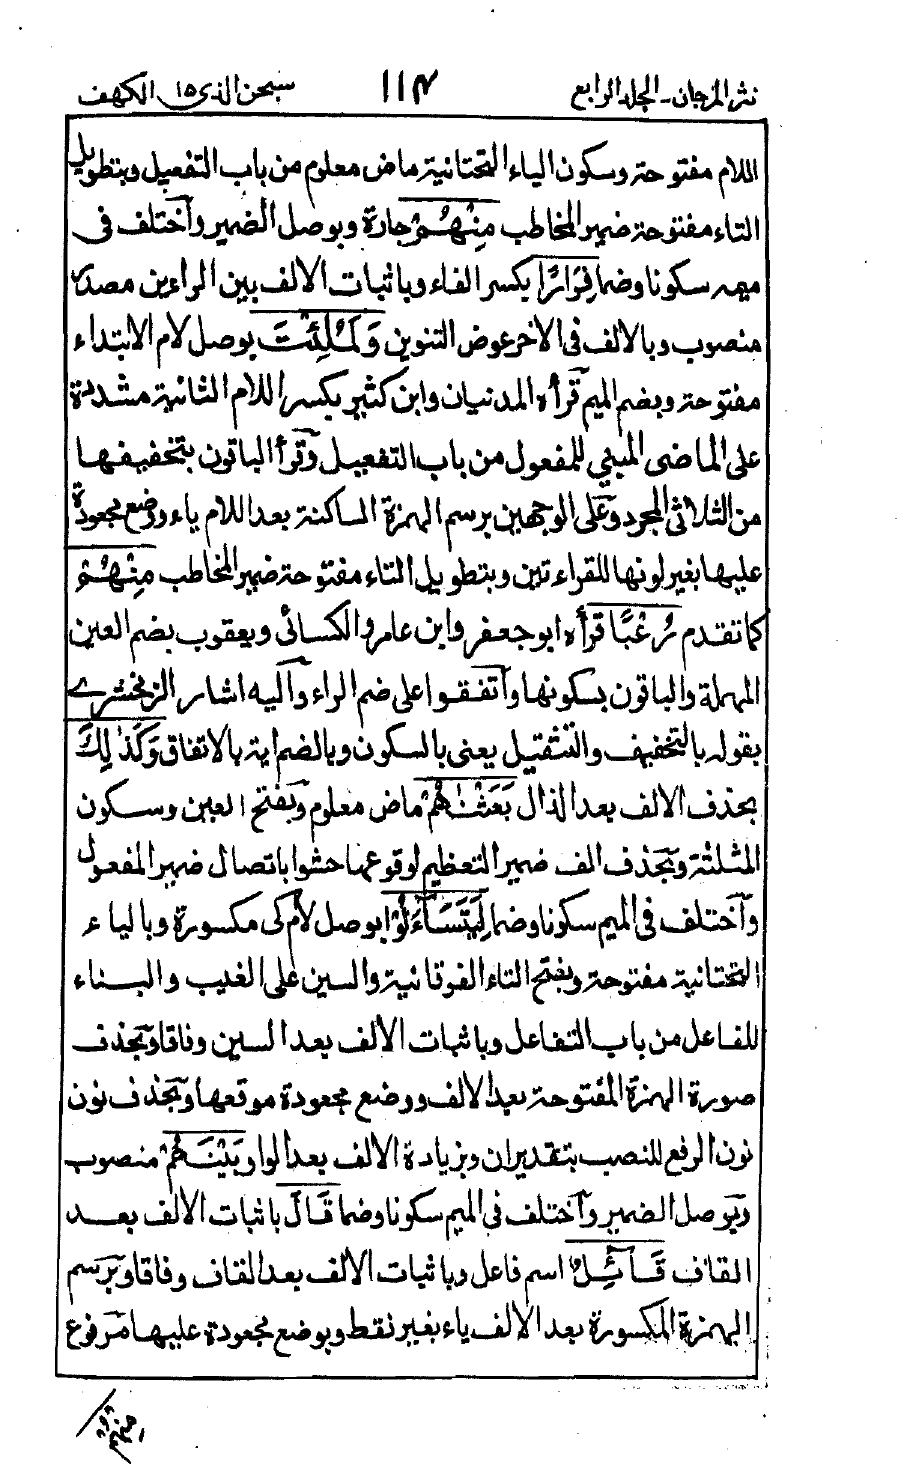 نثر المرجان - الجلد الرابع ١١٣ سبحن الذى ١٥ الكهف
اللام مفتوحة وسكون الياء التحتانية ماض معلوم من باب التفعيل وبتطويل
التاء مفتوحة ضمير المخاطب مِنْهُمْ جارة وبوصل الضمير وآختلف فى
ميمه سكونا وضما فِرَارًا بكسر الفاء وباثبات الالف بين الراءين مصدر
منصوب وبالالف فى الاخر عوض التنوين وَلَمُلِئْتَ بوصل لام الابتداء
مفتوحة وبضم الميم قرأه المدنيان وابن كثير بكسر اللام الثانية مشددة
على الماضى المبنى للمفعول من باب التفعيل وقرأ الباقون بتخفيفها
من الثلاثى المجرد وعلى الوجهين برسم الهمزة الساكنة بعد اللام ياء ووضع مجعودة
عليها بغير لونها للقراءتين وبتطويل التاء مفتوحة ضمير المخاطب مِنْهُمْ
كما تقدم رُعْبًا قرأه ابو جعفر وابن عامر والكسائى ويعقوب بضم العين
المهملة والباقون بسكونها وآتفقوا على ضم الراء وآليه اشار الزمخشرى
بقوله بالتخفيف والتثقيل يعنى بالسكون وبالضم اية بالاتفاق وَكَذٰلِكَ
بحذف الالف بعد الذال بَعَثْنٰهُمْ ماض معلوم وبفتح العين وسكون
المثلثة وبحذف الف ضمير التعظيم لوقوعها حشوا باتصال ضمير المفعول
وآختلف فى الميم سكونا وضما لِيَتَسَآءَلُوْا بوصل لام كى مكسورة وبالياء
التحتانية مفتوحة وبفتح التاء الفوقانية والسين على الغيب والبناء
للفاعل من باب التفاعل وباثبات الالف بعد السين وفاقا وبحذف
صورة الهمزة المفتوحة بعد الالف ووضع مجعودة موقعها وبحذف نون
نون الرفع للنصب بتقدير ان وبزيادة الالف بعد الواو بَيْنَهُمْ منصوب
وبوصل الضمير وآختلف فى الميم سكونا وضما قَالَ باثبات الالف بعد
القاف قَآئِلٌ اسم فاعل وباثبات الالف بعد القاف وفاقا وبرسم
الهمزة المكسورة بعد الالف ياء بغير نقط وبوضع مجعودة عليها مرفوع